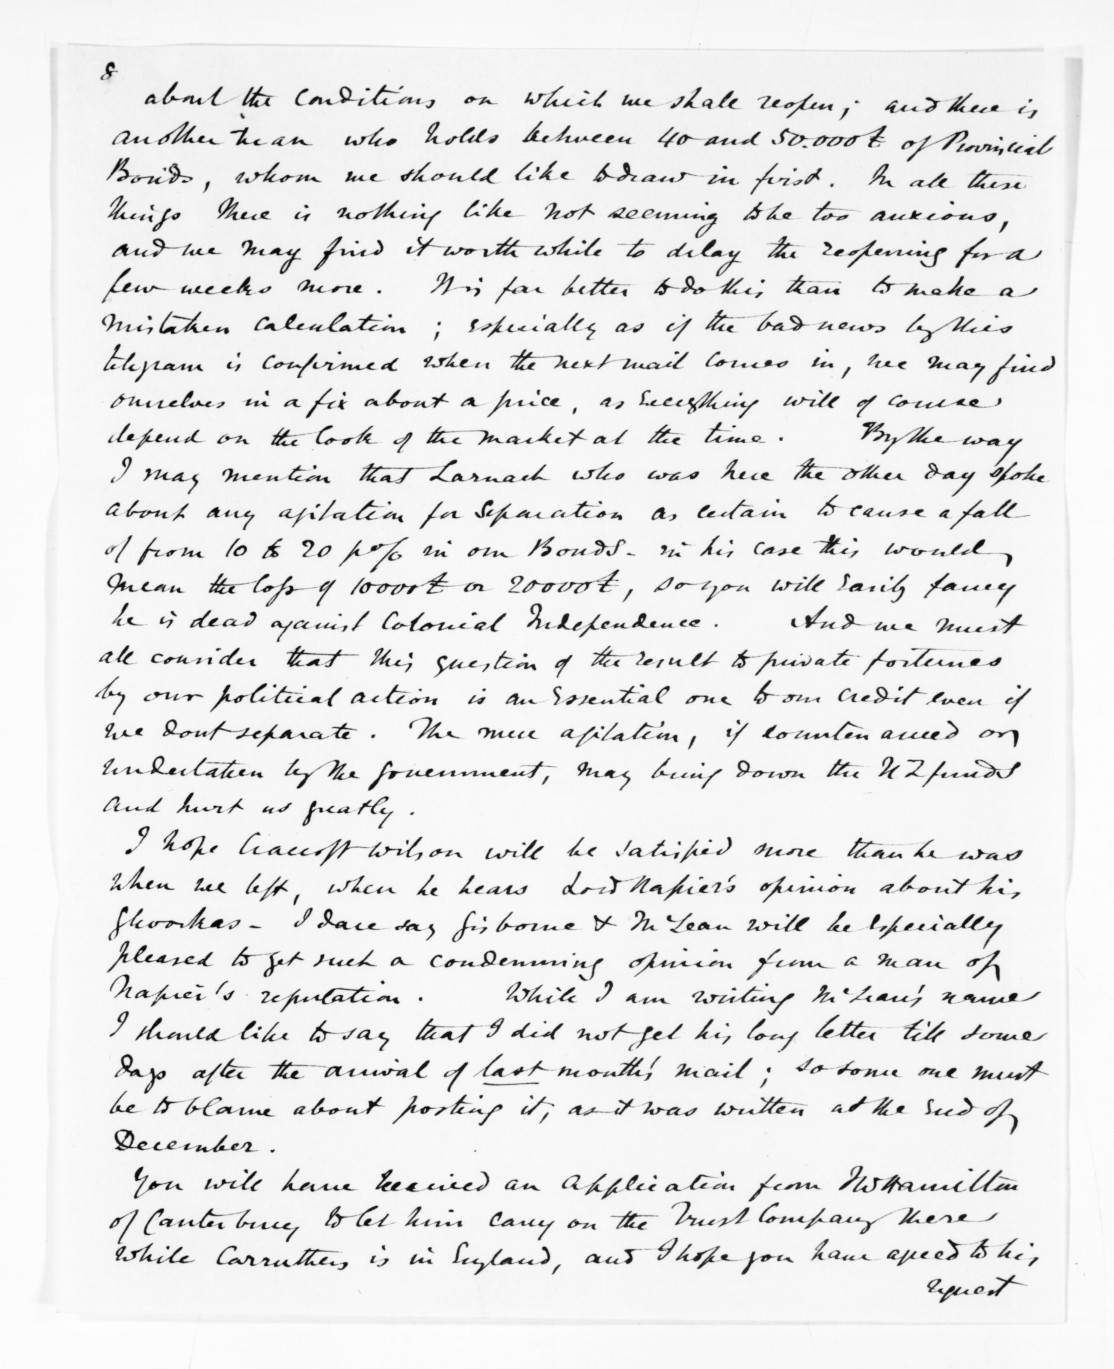 8
about the conditions on which we shall reopen; and there is
another man who holds between 40 and 50.000£ of Provincial
Bonds, whom we should like to draw in first. In all these
things there is nothing like not seeming to be too anxious,
and we may find it worth while to delay the reopening for a
few weeks more. It is far better to do this than to make a
mistaken calculation; especially as if the bad news by this
telegram is confirmed when the next mail comes in, we may find
ourselves in a fix about a price, as Everything will of course
depend on the look of the market at the time. By the way
I may mention that Larnach who was here the other day spoke
about any agitation for Separation as certain to cause a fall
of from 10 to 20 p% in our Bonds - in his case this would
mean the loss of 10000£ or 20000£, so you will Easily fancy
he is dead against Colonial Independence. And we must
all consider that this question of the result to private fortunes
by our political action is an Essential one to our credit even if
we dont separate. The mere agitation, if countenanced or
undertaken by the Government, may bring down the NZ funds
and hurt us greatly.
I hope Cracroft Wilson will be satisfied more than he was
when we left, when he hears Lord Napier's opinion about his
Ghoorkas - I dare say Gisborne & McLean will be Especially
pleased to get such a condemning opinion from a man of
Napier's reputation. While I am writing McLean's name
I should like to say that I did not get his long letter till some
days after the arrival of last month's mail; so some one must
be to blame about posting it, as it was written at the End of
December.
You will have received an application from Hamilton
of Canterbury to let him carry on the Trust Company there
while Carruthers is in England, and I hope you have agreed to his
request